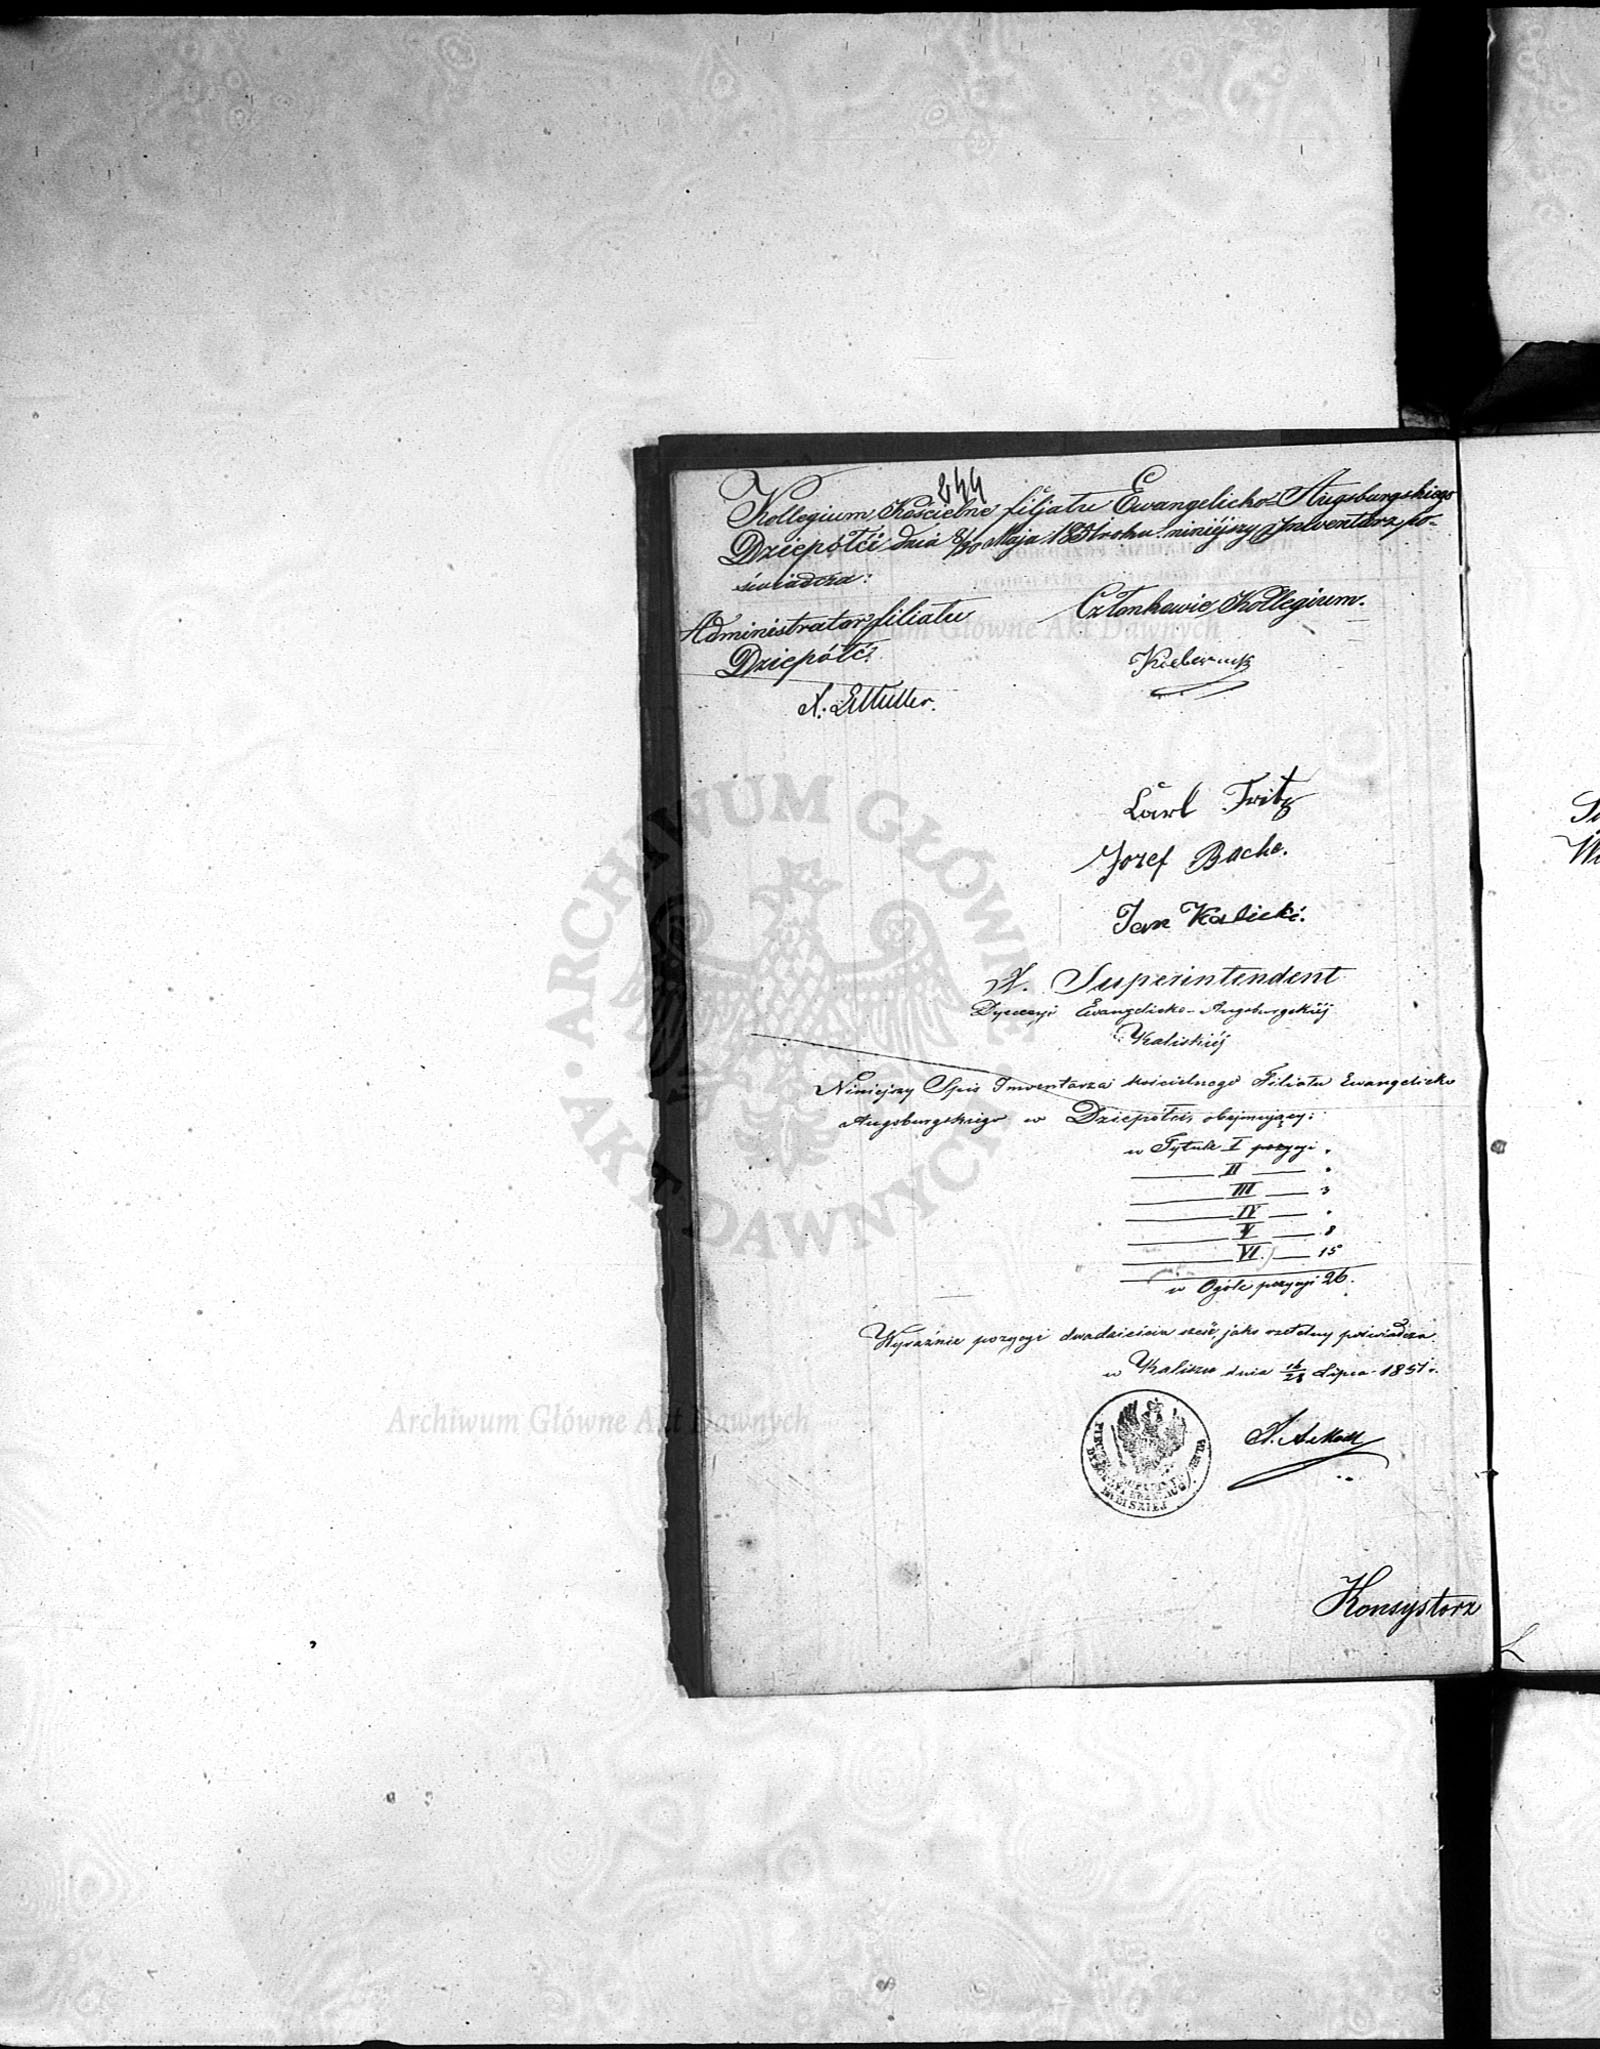 244
Kollegium Kościelne filjatu Ewangelicko=Augsburgskiego
Dziepółci dnia 8/20 Maja 1851 roku niniéjszy Inwentarz po-
świadcza:
Administrator filiatu
Dziepółć:
Członkowie Kollegium.
Carl Fritz
Jozef Bache.
Jan Kalicki.
X. Superintendent
Dyecezyi Ewangelicko-Augsburgskiéj
Kaliskiéj
Niniejszy Spis Inwentarza kościelnego Filiatu Ewangelicko
Augsburgskiego w Dziepółci, obejmujący:
w Tytule I pozycyi "
II — "
III — 3
IV — "
V — 8
VI. — 15
w Ogóle pozycyi 26.
Wyraźnie pozycyi dwadzieścia sześć, jako rzetelny poświadcza
w Kaliszu dnia 16/28 Lipca 1851 r.
Konsystorz
ARCHIWUM GŁÓWNE • AKT DAWNYCH •
Archiwum Główne Akt Dawnych
Archiwum Główne Akt Dawnych